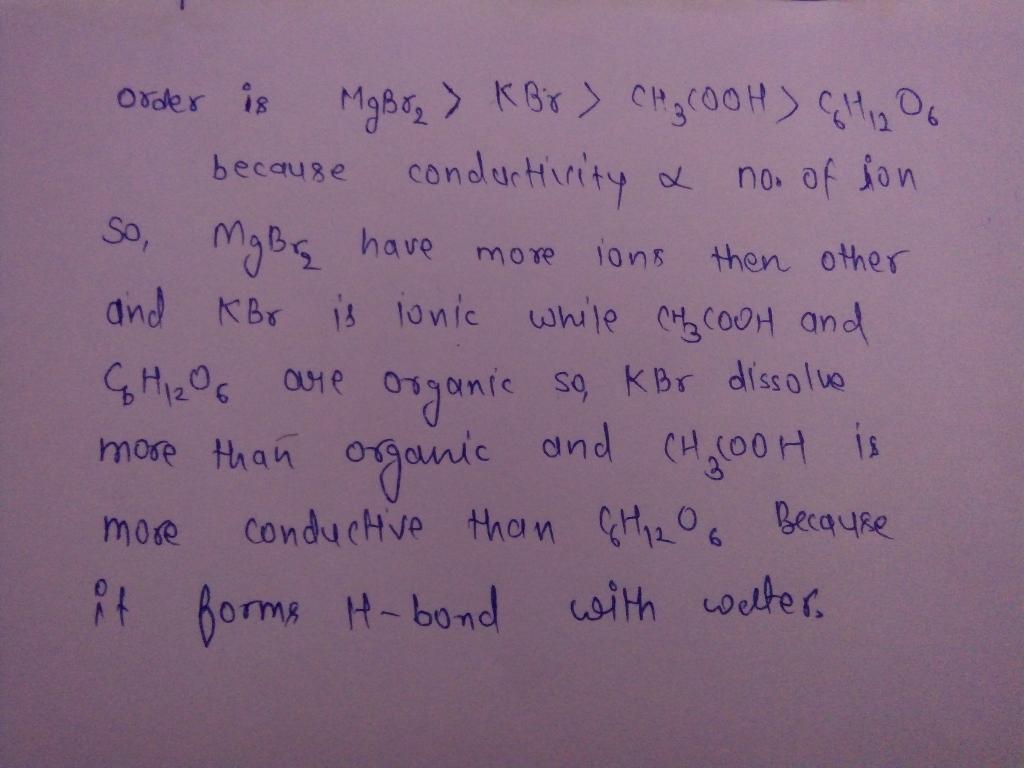 order is MgBr₂ > KBr > CH₃COOH > C₆H₁₂O₆
because conductivity ∝ no. of ion
So, MgBr₂ have more ions then other
and KBr is ionic while CH₃COOH and
C₆H₁₂O₆ are organic so, KBr dissolve
more than organic and CH₃COOH is
more conductive than C₆H₁₂O₆ Because
it forms H-bond with water.